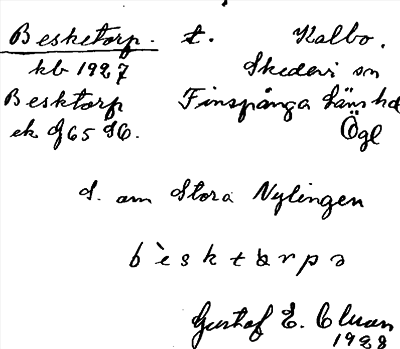 Besketorp. t. Kalbo.
kb 1927 Skedevi sn
Besktorp Finspånga läns hd
ek J65 SO. Ögl
S. om Stora Nylingen
bèsktårpa
Gustaf E. Cluan
1928